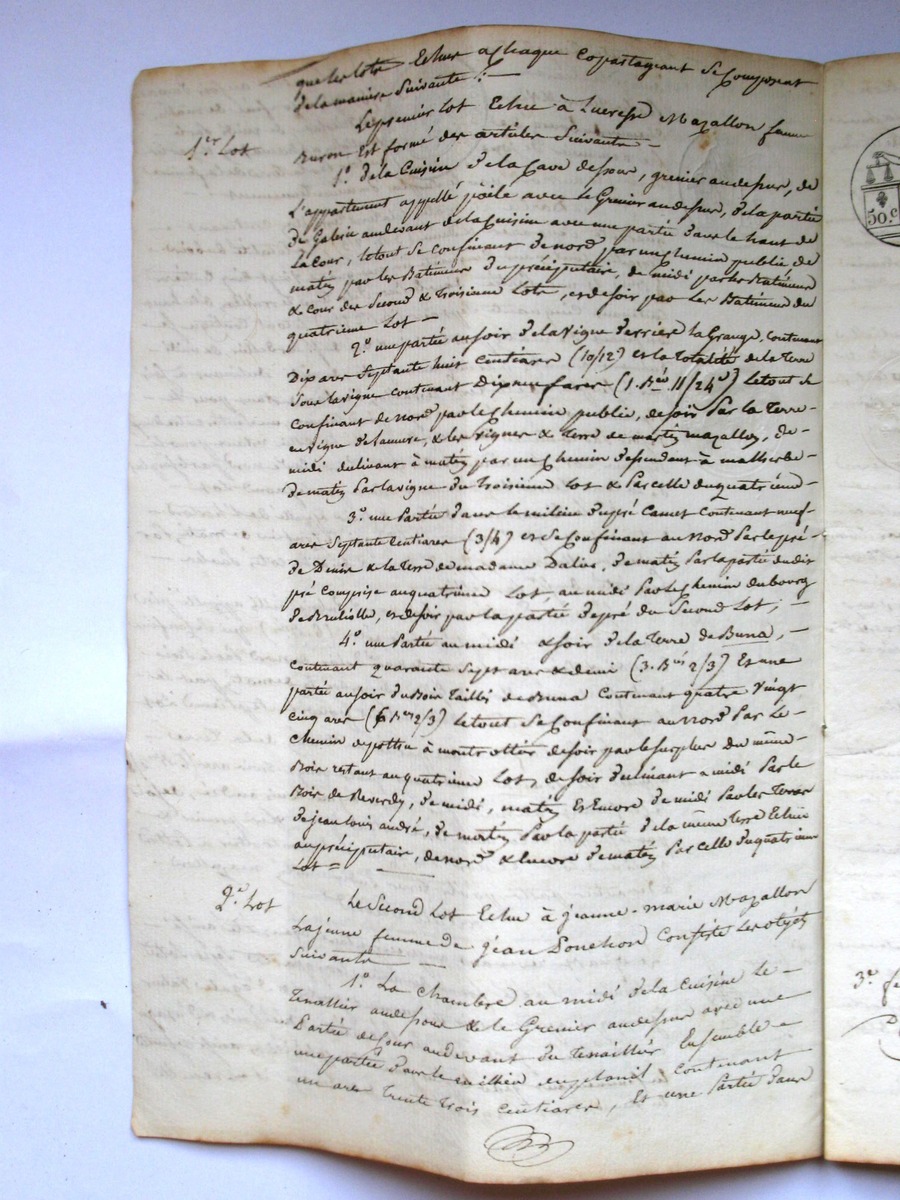 que les lots Echus a Chaque Copartageant Se Composent
de la maniere Suivante :—
1er Lot
Le premier Lot Echu à Lucresse Mazallon femme
Buron Est formé des articles Suivants —
1º. de la Cuisine de la Cave dessous, grenier au dessus, de
L'appartement appellé poile avec le Grenier au dessus, de la partie
de Galerie au devant de la Cuisine avec une partie dans le haut de
La Cour, le tout Se Confinant de nord par un chemin public de
matin par les Batiments du préciputaire, de midi par les Batiments
& Cour des Second & Troisieme Lots, et de soir par les Batiments du
quatrieme Lot —
2º. une partie au soir de la vigne derrière la Grange, Contenant
Dix ares Septante huit Centiares (10/12) et la Totalité de la Terre
Sous la vigne Contenant Dix neuf ares (1. 11/24) le tout Se
Confinant de nord par le Chemin public, de soir Par la Terre
en vigne de & les vignes & Terre de martin mazallon, de
midi declinant à matin par un Chemin dependant à
de matin Par la vigne du Troisieme Lot & Par celle du quatrième
3º. une Partie dans le milieu du pré Camet Contenant neuf
ares Septante Centiares (3/4) et Se Confinant au Nord Par le pré
de Denis & la Terre de madame Dalin, de matin Par la partie du dit
pré Comprise au quatrieme Lot, au midi Par le Chemin du bourg
de Brulliolle, et de soir par la partie de pré du Second Lot; —
4º. une Partie au midi & soir de la Terre de Buna, —
Contenant quarante Sept ares & demi (3. 2/3) Et une
partie au soir du Bois Taillis de Buna Contenant quatre Vingt
Cinq ares (6 2/3) le tout Se Confinant au Nord Par Le
Chemin de à de soir par le surplus du même
Bois restant au quatrieme Lot, de soir declinant a midi Par le
Bois de Reverdy, de midi, matin Et Encore de midi Par les Terres
de jean louis andré, de matin Par la partie de la même Terre Echue
au préciputaire, de nord & Encore de matin Par Celle du quatrieme
Lot =
2e. Lot
Le Second Lot Echu à jeanne-marie Mazallon
La jeune femme de jean Ponchon Consiste les objets
Suivants —
1º. La chambre au midi de la Cuisine Le
Tenallier au dessous & le Grenier au dessus avec une
Partie de Cour au devant du Tenaillier Ensemble
une partie dans le millieu Contenant
un are Trente Trois Centiares, Et une Partie dans
50.c
3e. fe